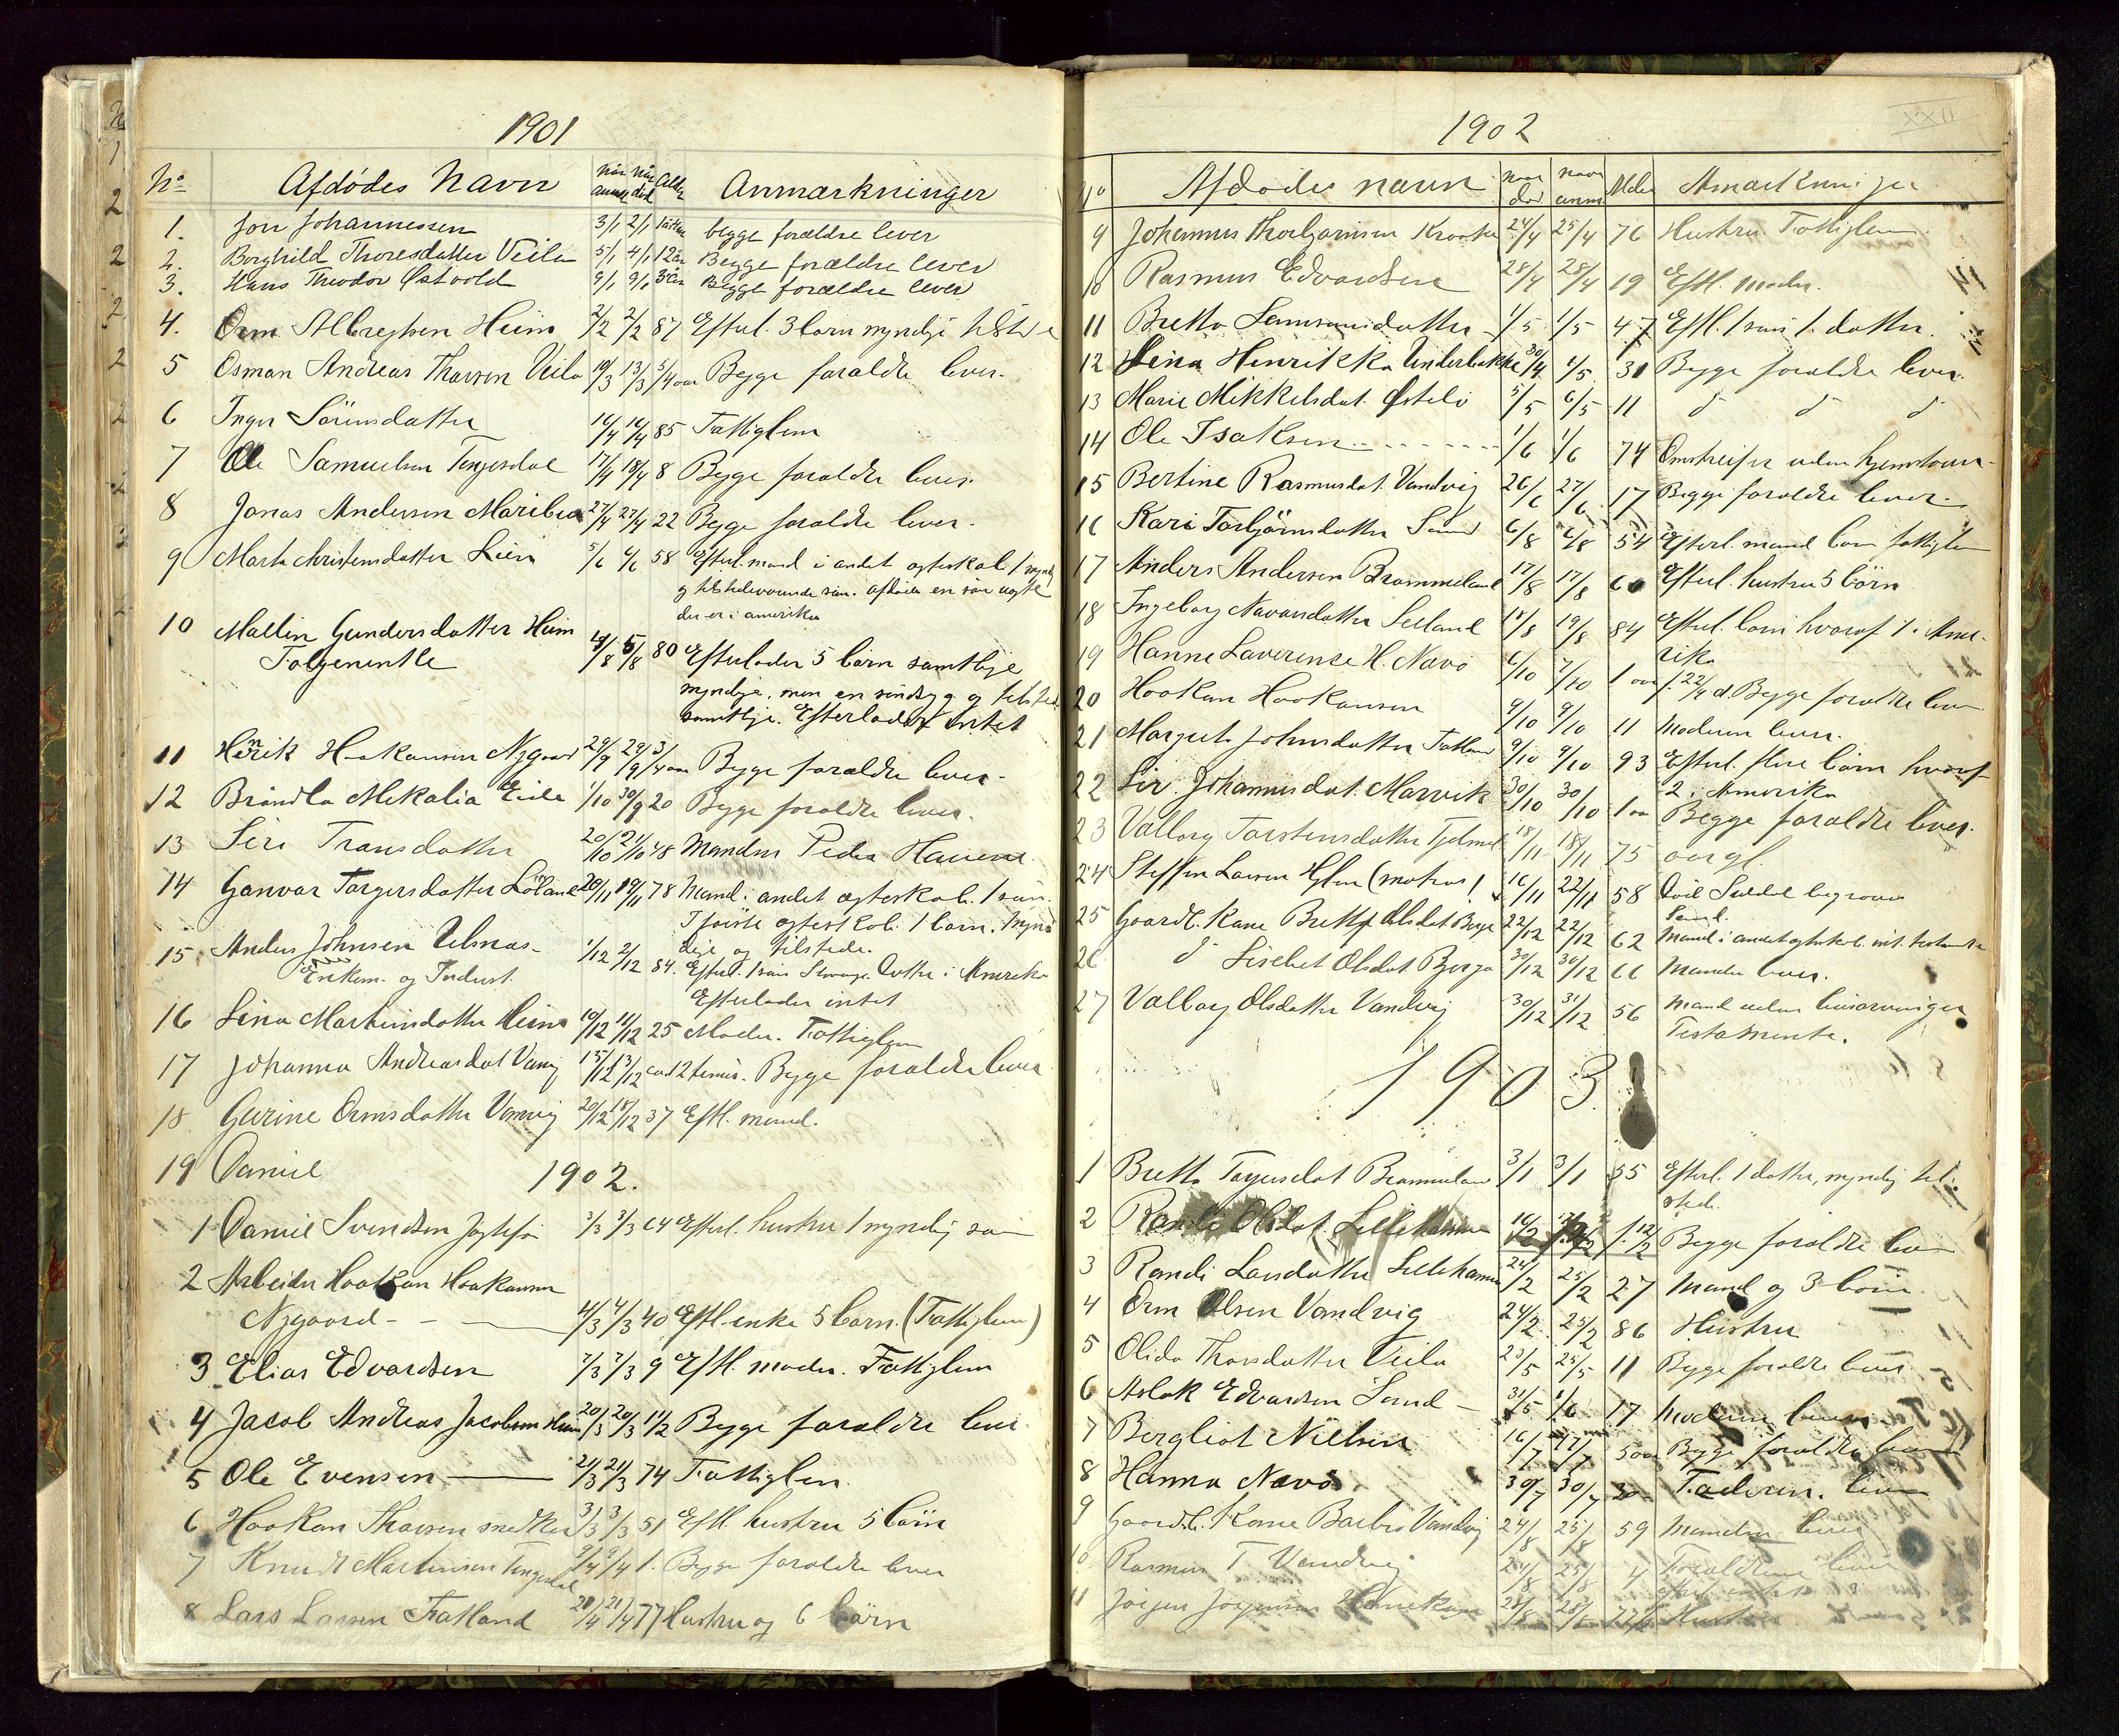 1901
No Afdödes Navn Når anm. Når död Alder Anmærkninger
1. Jon Johannessen 3/1 2/1 begge forældre lever
2. Borghild Thoresdatter Veila 5/1 4/1 12 år Begge forældre lever
3. Hans Theodor Østvold 9/1 9/1 3 år Begge forældre lever
4. Orm Albregtsen Hiim 2/2 2/2 87 Efterl. 3 barn myndige
5 Osman Andreas Thorsen Veila 19/3 13/3 5/4 aar Begge foraldre lever.
6 Inger Sörensdatter 16/4 16/4 85 Fattiglem
7 Ole Samuelsen Tengesdal 17/4 18/4 8 Begge foraldre lever.
8 Jonas Andersen Maribu 27/4 27/4 22 Begge foraldre lever.
9 Marta Christensdatter Lien 5/6 4/6 58 Efterl. mand i andet ægteskab 1 myndig
og tilstedeværende sön. afdöde en sön ægte
der er i amerika
10 Mallin Gundersdatter Hiim
Folgeenke 5/8 80 Efterlader 5 börn samtlige
myndige, men en sindsyg og tilsted
samtlige. Efterlader intet
11 Henrik Haakonsen Nygaard 29/9 29/9 3/4 aar Begge forældre lever.
12 Bröndla Mekalia Eide 1/10 30/9 20 Begge foraldre lever.
13 Siri Transdatter 20/10 21/10 48 Manden Peder Havene
14 Gunvor Torgersdatter Löland 20/11 19/11 78 Mand i andet ægteskab. 1 sön.
I förste ægteskab. 1 barn. mynd
dige og tilstede.
15 Anders Johnsen Ulsnæs 1/12 2/12 84. Efterl. 1 sön Datter i Amerika
Enkem. og Inderst. Efterlader intet
16 Lina Martinsdatter Hiim 10/12 11/12 25 Moder. Fattiglem
17 Johanna Andreasdat Vanvig 15/12 13/12 ca 12 timer. Begge foraldre lever
18 Gurine Ormsdatter Vanvig 20/12 18/12 37 Eftl. mand.
19 Daniel 1902.
1 Daniel Svendsen 3/3 3/3 64 Efterl. hustru 1 myndig sön
2 Arbeider Haakan Haakansen
Nygaard - - 4/3 4/3 40 Eftl. enke 5 barn. (Fattiglem)
3 Elias Edvardsen 7/3 7/3 9 Eftl. moder. Fattiglem
4 Jacob Andreas Jacobsen Hiim 20/3 20/3 1 1/2 Begge foraldre lever
5 Ole Evensen 21/3 21/3 74 Fattiglem.
6 Haakan Thorsen snedker 31/3 31/3 51 Eftl hustru 5 börn
7 Knudt Martinsen Tengesdal 9/4 9/4 1. Begge foraldre lever
8 Lars Larsen Fatland 20/4 21/4 77 Hustru og 6 börn
1902
XXII
No Afdödes navn naar död naar anm. Alder Anmærkninger
9 Johannes Thorbjørnsen 24/4 25/4 76 Hustru Fattiglem
10 Rasmus Edvardsen 28/4 28/4 19 Eftl. moder.
11 Bretta Samsonsdatter 1/5 1/5 47 Eftl. 1 sön 1. datter.
12 Lina Henrikka Underbakke 30/4 1/5 31 Begge foraldre lever.
13 Marie Mikkelsdat. Østebö 5/5 6/5 11 d d d
14 Ole Isaksen - - - - 1/6 1/6 74 Omstreifer uden hjemstavn
15 Bertine Rasmusdat. Vandvig 26/6 27/6 17 Begge foraldre lever.
16 Kari Torbjörnsdatter Sand 6/8 6/8 54 Efterl. mand barn fattiglem
17 Anders Andersen Brommeland 17/8 17/8 60 Efterl. hustru 5 börn
18 Ingeborg Navarsdatter Leeland 18/8 19/8 84 Efterl. barn hvoraf 1 i Ame-
rika
19 Hanne Laverense H. Nævö 6/10 7/10 1 aar f. 22/4 d. Begge foraldre lever
20 Haakan Haakansen 9/10 9/10 11 Moderen lever.
21 Margreta Johnsdatter Fatland 9/10 9/10 93 Efterl. flere börn hvoraf
2 i Amerika
22 Siv. Johannesdat. Marvik 30/10 30/10 1 aar Begge foraldre lever.
23 Valborg Torstensdatter 18/11 18/11 75 aar gl.
24 Steffen Larsen (matros) 16/11 22/11 58 Död Suldal begraves
Sand.
25 Gaardb. Kone Bretta Olsdat Berge 22/12 22/12 62 Mand i andet ægteskab.
26 d Lisebet Olsdat Berge 30/12 30/12 66 Manden lever.
27 Valborg Olsdatter Vandvig 30/12 31/12 56 Mand uden livsarvinger
Testamente.
1903.
1 Bretta Torgersdat Brommeland 3/1 3/1 55 Efterl. 1 datter, myndig til-
sted.
2 Randi Olsdat. Lillehammer 16/2 f. 12/2 Begge foraldre lever
3 Randi Larsdatter Lillehammer 24/2 25/2 27 Mand og 3 börn
4 Orm Olsen Vandvig 24/2 25/2 86 Hustru
5 Olida Thorsdatter Veila 23/5 25/5 11 Begge foraldre lever.
6 Aslak Edvardsen Sand - 31/5 1/6 17 Moderen lever
7 Bergliot Nielsen 16/7 17/7 5 aar Begge foraldre lever
8 Hanna Nævö 30/7 30/7 Faderen. lever
9 Gaardb. Kone Barbro Vandvig 24/8 25/8 59 Manden lever
10 Rasmus T. Vandvig 24/8 25/8 4 Foraldrene lever
11 Jörgen Jörgensen 28/8 28/8